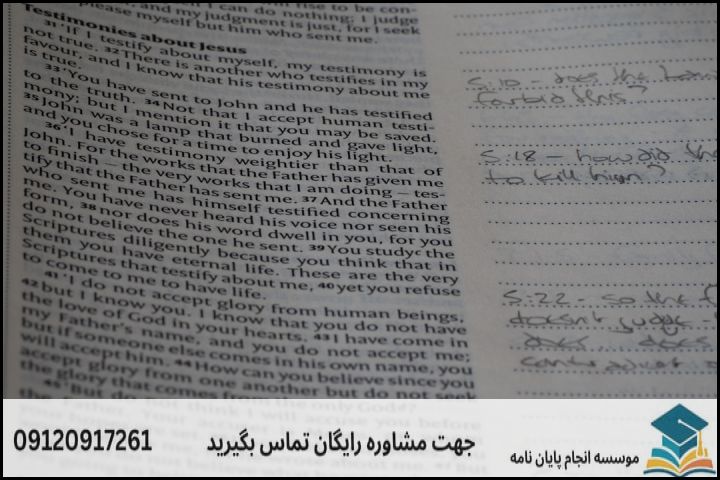 I can do nothing; I judge
and my judgment is just, for I seek
please myself but him who sent me.
Testimonies about Jesus
31 ‘If I testify about myself, my testimony is
not true. 32 There is another who testifies in my
favour, and I know that his testimony about me
is true.
33 ‘You have sent to John and he has testified
to the truth. 34 Not that I accept human testi-
mony; but I mention it that you may be saved.
35 John was a lamp that burned and gave light,
and you chose for a time to enjoy his light.
36 ‘I have testimony weightier than that of
John. For the works that the Father has given me
to finish – the very works that I am doing – tes-
tify that the Father has sent me. 37 And the Father
who sent me has himself testified concerning
me. You have never heard his voice nor seen his
form, 38 nor does his word dwell in you, for you
do not believe the one he sent. 39 You study c the
Scriptures diligently because you think that in
them you have eternal life. These are the very
Scriptures that testify about me, 40 yet you refuse
to come to me to have life.
41 ‘I do not accept glory from human beings,
42 but I know you. I know that you do not have
the love of God in your hearts. 43 I have come in
my Father’s name, and you do not accept me;
but if someone else comes in his own name, you
will accept him. 44 How can you believe since you
accept glory from one another but do not seek
the glory that comes from the only God d?
45 ‘But do not think I will accuse you before
5:10 – does the
forbid this?
5:18 – how did the
to kill him?
5:22 – so the
doesn't judge –
does. does
جهت مشاوره رایگان تماس بگیرید 09120917261
موسسه انجام پایان نامه